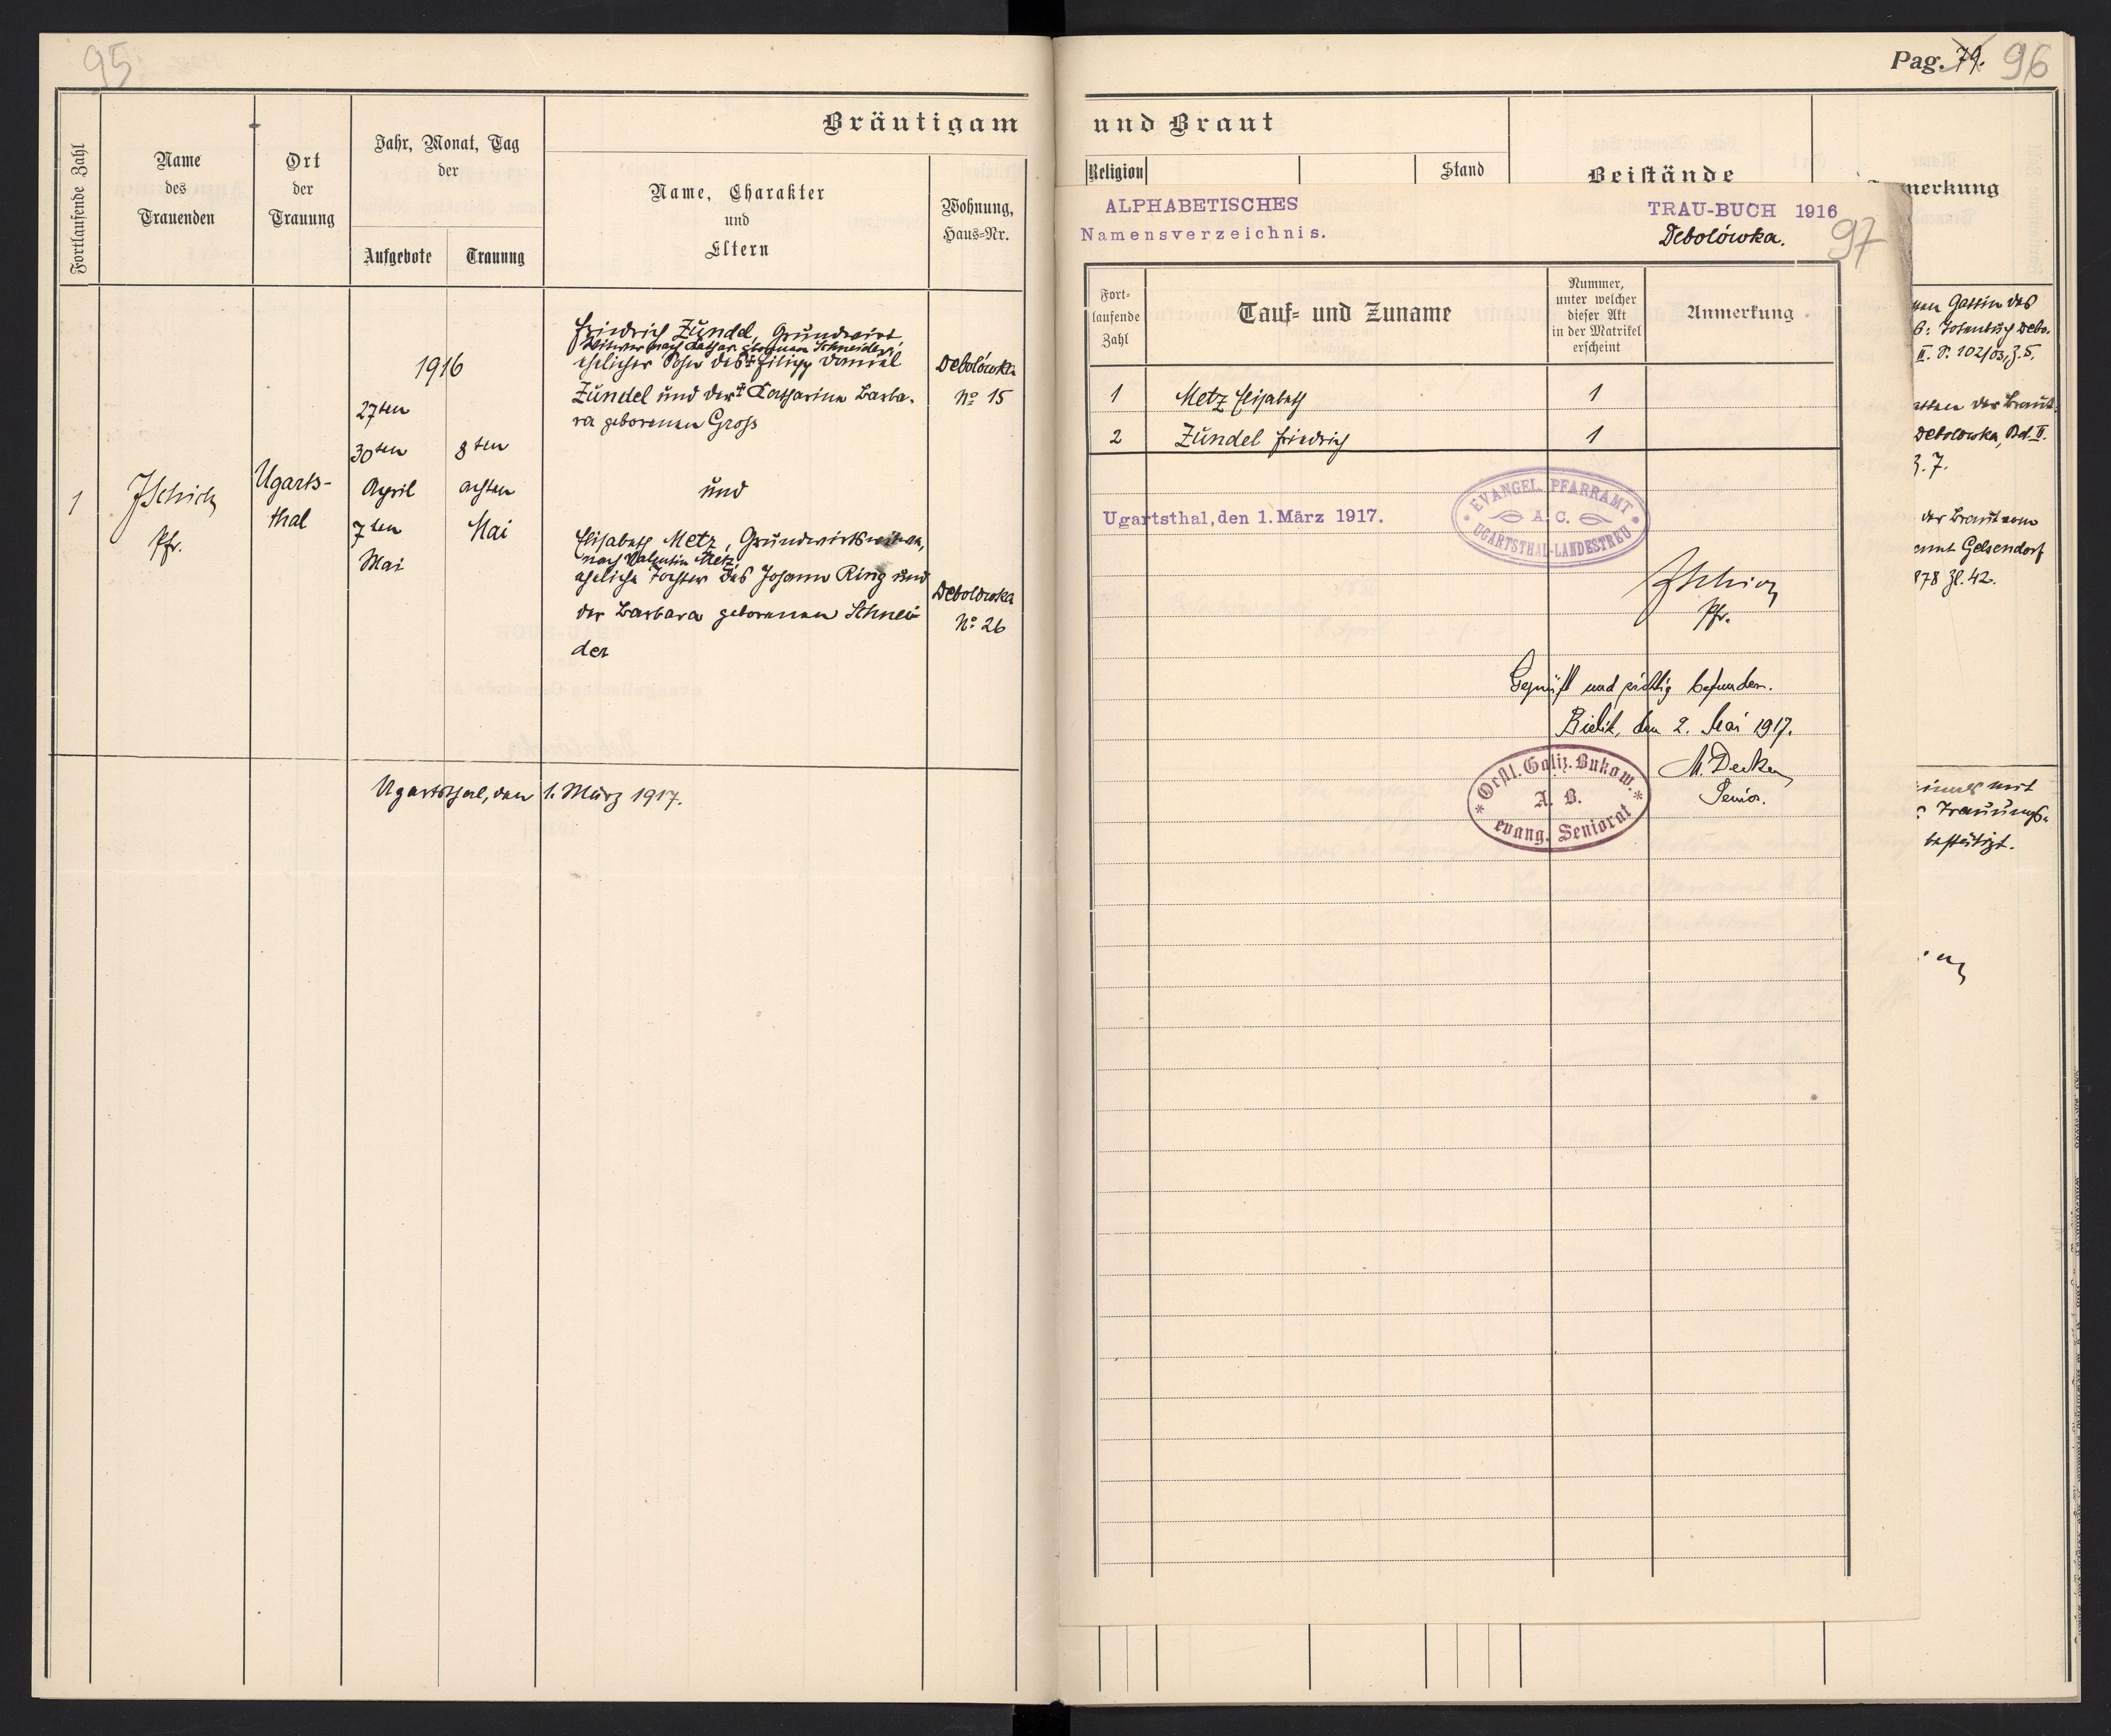 95
Bräutigam
Fortlaufende Zahl
Name
des
Trauenden
Ort
der
Trauung
Jahr, Monat, Tag
der
Aufgebote
Trauung
Name, Charakter
und
Eltern
Wohnung,
Haus=Nr.
1
JSchick
Pfr.
Ugarts-
thal
1916
27ten
30ten
April
7ten
Mai
8ten
achten
Mai
Friedrich Zündel, Grundwirt,
Witwer nach Kathar. geborenen Schneider,
ehelicher Sohn des † Filipp Daniel
Zündel und der † Katharina Barba-
ra geborenen Gross
Debolówka
No 15
und
Elisabeth Metz, Grundwirtswitwe,
nach Valentin Metz,
eheliche Tochter des Johann Ring und
der Barbara geborenen Schnei-
der
Debolówka
No 26
Ugartsthal, den 1. März 1917.
Pag. 79. 96
und Braut
Religion
Stand
Beistände
merkung
ALPHABETISCHES
Namensverzeichnis.
TRAU-BUCH 1916
Debolówka.
97
Fort=
laufende
Zahl
Tauf= und Zuname
Nummer,
unter welcher
dieser Akt
in der Matrikel
erscheint
Anmerkung
1 Metz Elisabeth 1
2 Zündel Friedrich 1
Ugartsthal, den 1. März 1917.
EVANGEL. PFARRAMT
A. C.
UGARTSTHAL-LANDESTREU
JSchick
Pfr.
Geprüft und richtig befunden.
Bielitz, den 2. Mai 1917.
Senior.
Oestl. Galiz. Bukow.
A. B.
evang. Seniorat
Gattin des
Totenbuch Debo-
II. S. 102/03, Z. 5.
der Braut
Debolówka, Bd. II.
Z. 7.
der Braut vom
amt Gelsendorf
878 Zl. 42.
mit
Trauungs-
bestätigt.